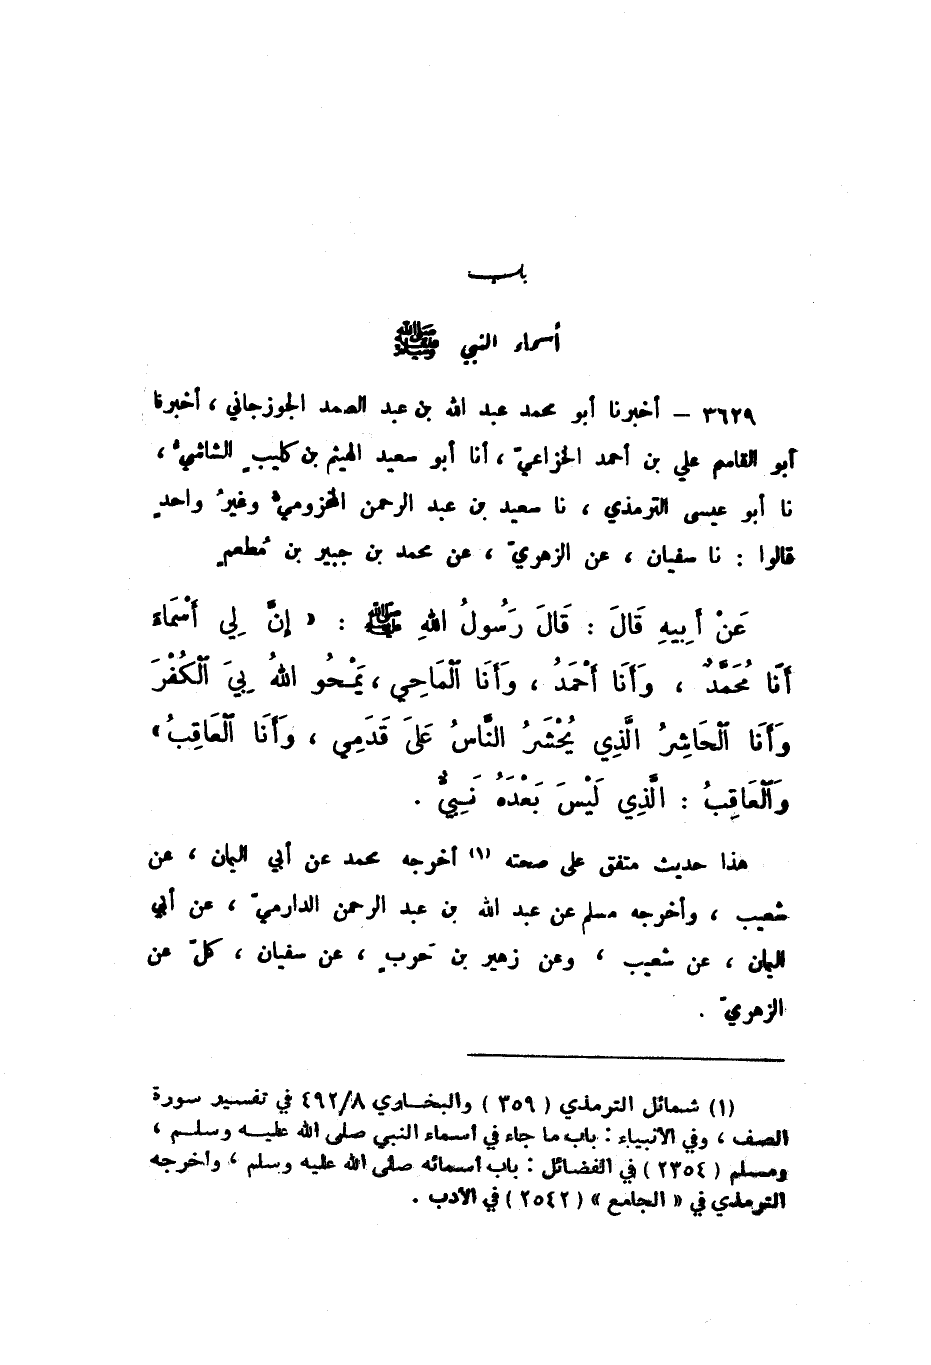 باب
أسماء النبي ﷺ
٣٦٢٩ – أخبرنا أبو محمد عبد الله بن عبد الصمد الجوزجاني ، أخبرنا
أبو القاسم علي بن أحمد الخزاعيّ ، أنا أبو سعيد الهيثم بن كليبٍ الشاشيُّ ،
نا أبو عيسى الترمذي ، نا سعيد بن عبد الرحمن المخزوميُّ وغيرُ واحدٍ
قالوا : نا سفيان ، عن الزهريّ ، عن محمد بن جبير بن مُطعمٍ
عَنْ أَبِيهِ قَالَ : قَالَ رَسُولُ اللهِ ﷺ : « إِنَّ لِي أَسْمَاءَ
أَنَا مُحَمَّدٌ ، وَأَنَا أَحْمَدُ ، وَأَنَا الْمَاحِي ، يَمْحُو اللهُ بِيَ الْكُفْرَ
وَأَنَا الْحَاشِرُ الَّذِي يُحْشَرُ النَّاسُ عَلَى قَدَمِي ، وَأَنَا الْعَاقِبُ »
وَالْعَاقِبُ : الَّذِي لَيْسَ بَعْدَهُ نَبِيٌّ .
هذا حديث متفق على صحته (١) أخرجه محمد عن أبي اليمان ، عن
شعيب ، وأخرجه مسلم عن عبد الله بن عبد الرحمن الدارميّ ، عن أبي
اليمان ، عن شعيب ، وعن زهير بن حَربٍ ، عن سفيان ، كلّ عن
الزهريّ .
(١) شمائل الترمذي ( ٣٥٩ ) والبخاري ٤٩٢/٨ في تفسير سورة
الصف ، وفي الأنبياء : باب ما جاء في أسماء النبي صلى الله عليه وسلم ،
ومسلم ( ٢٣٥٤ ) في الفضائل : باب أسمائه صلى الله عليه وسلم ، وأخرجه
الترمذي في « الجامع » ( ٢٥٤٢ ) في الأدب .